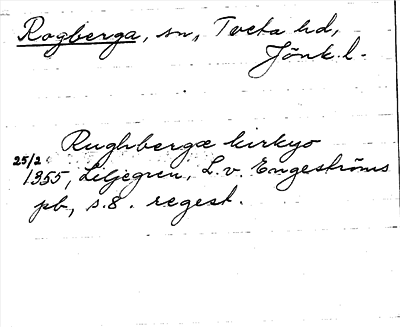 Rogberga, sn, Tveta hd,
Jönk. l.
Rughbergæ kirkyo
25/2 1355, Liljegren, L. v. Engeströms
pb, s. 8. regest.